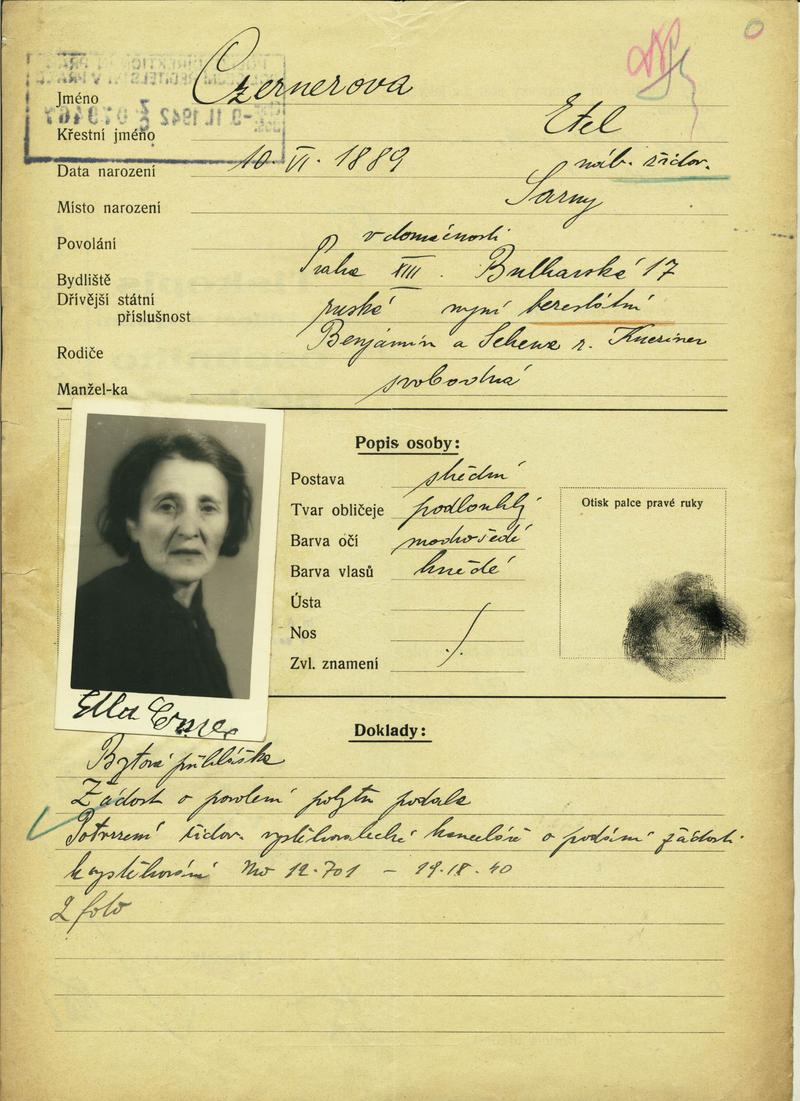 Jméno Czernerova
Křestní jméno Etel
Data narození 10. VI. 1889 náb. židov.
Místo narození Sarny
Povolání v domácnosti
Bydliště Praha XIII. Bulharská 17
Dřívější státní
příslušnost ruské nyní bezestátní
Rodiče Benjámin a r.
Manžel-ka svobodná
Popis osoby:
Postava střední
Tvar obličeje podlouhlý
Barva očí modrošedé
Barva vlasů hnědé
Ústa
Nos
Zvl. znamení
Otisk palce pravé ruky
Doklady:
Bytová přihláška
Žádost o povolení pobytu podala
Potvrzení židov. vystěhovalecké kanceláře o podání žádosti
k vystěhování 12.701 - 19.IX.40
2 foto